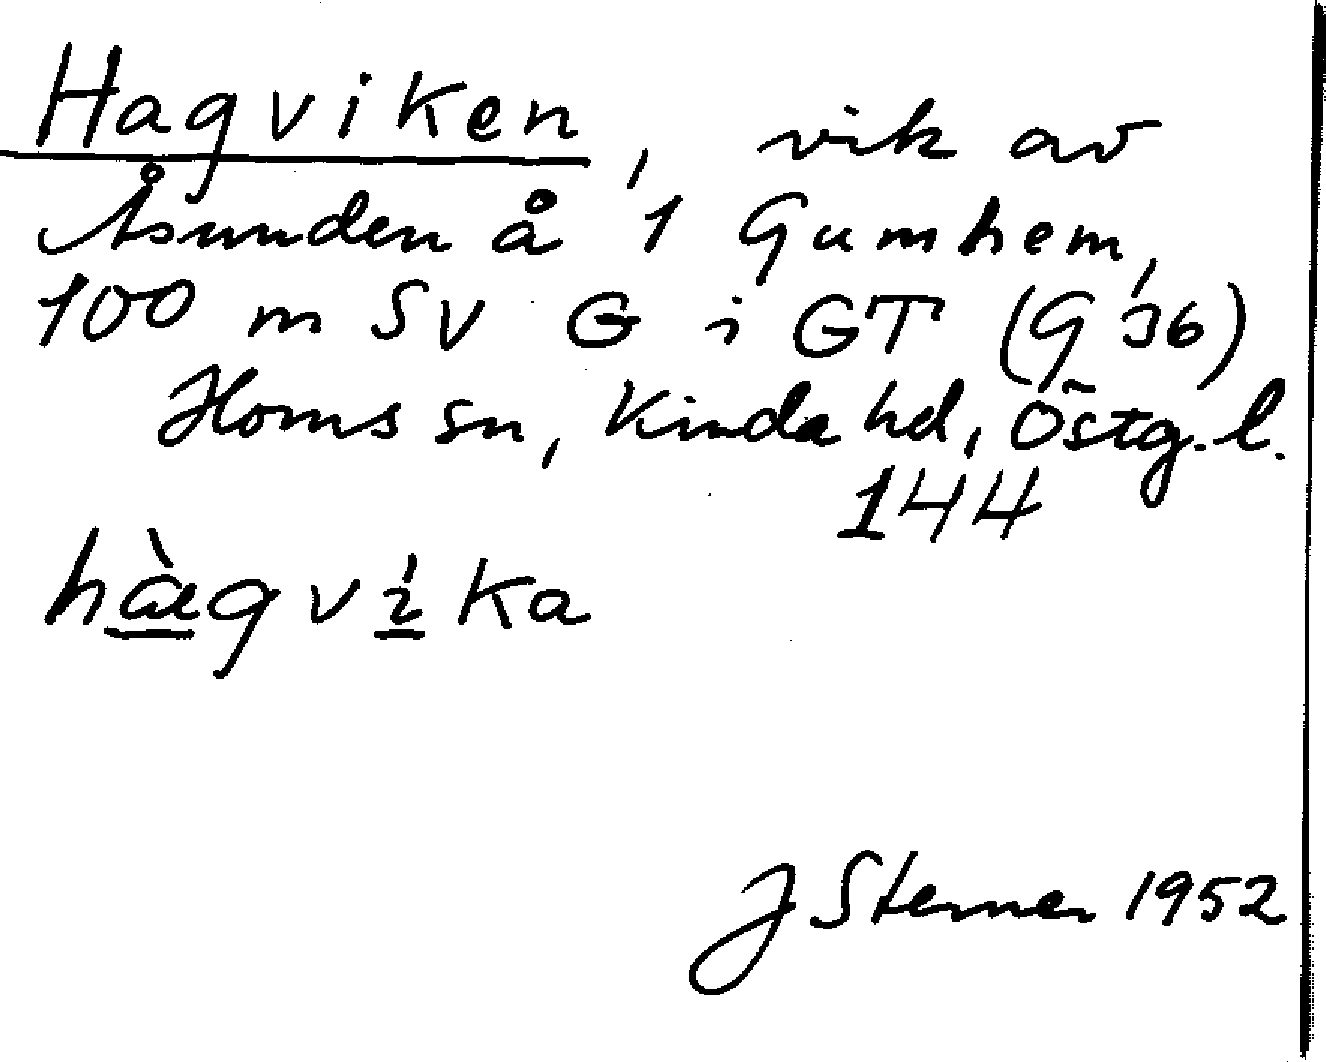 Hagviken, vik av
Åsunden å 1 Gumhem,
100 m SV G i GT (G'36)
Homs sn, Kinda hd, Östg. l.
144
hàegvika
J Sterner 1952